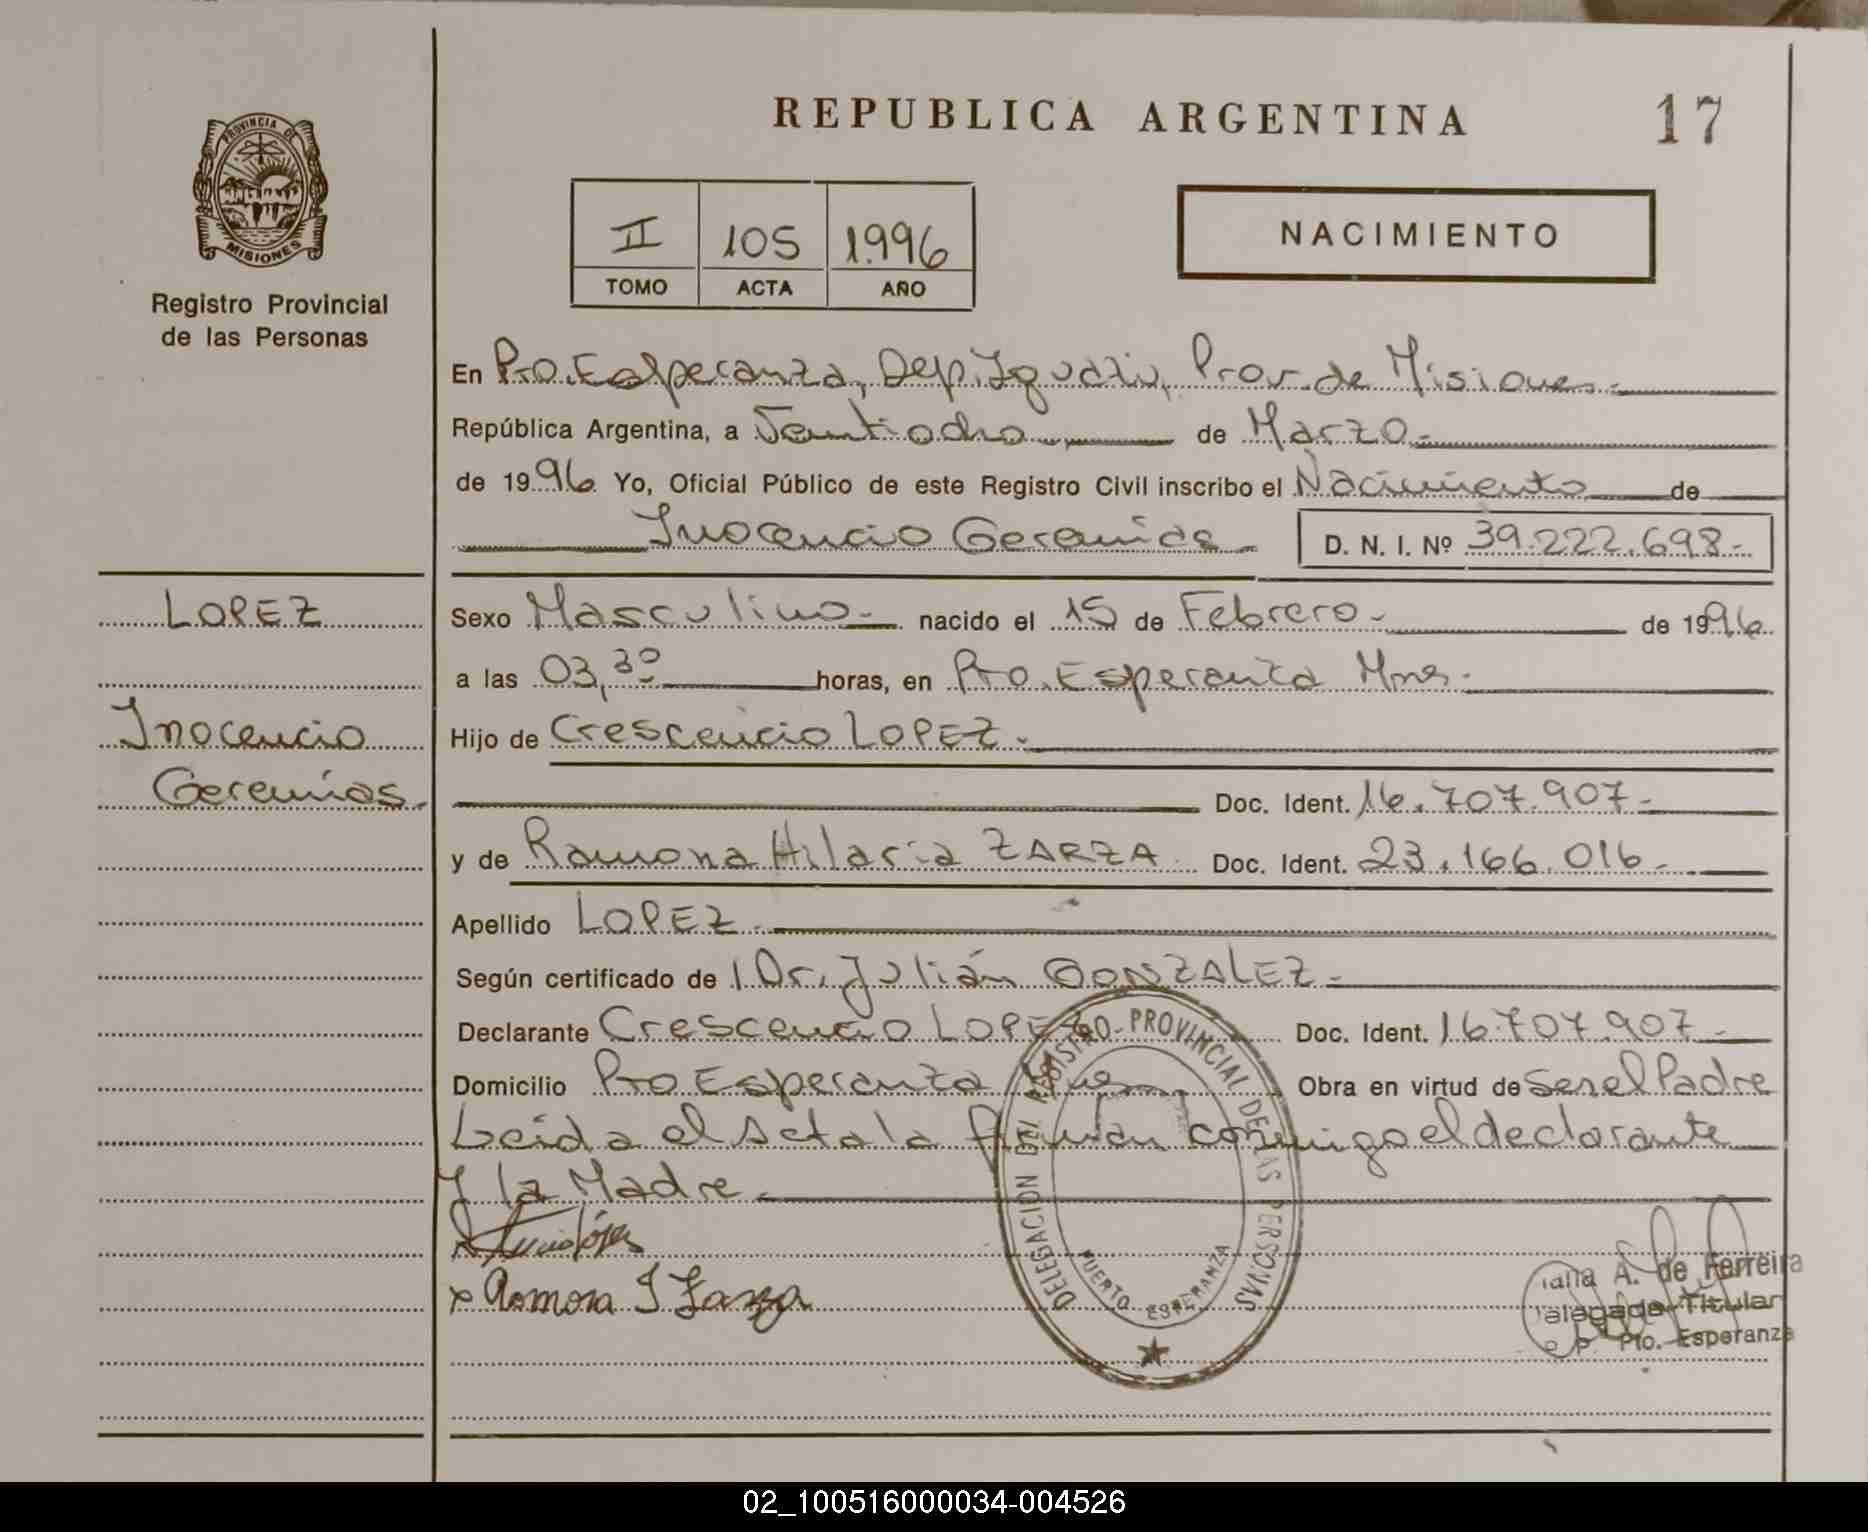 REPUBLICA ARGENTINA 17
PROVINCIA DE
MISIONES
Registro Provincial
de las Personas
II 105 1.996
TOMO ACTA AÑO
NACIMIENTO
En Pto. Esperanza, Dep. Iguazú, Prov. de Misiones.-
República Argentina, a Veintiocho de Marzo.-
de 1996 Yo, Oficial Público de este Registro Civil inscribo el Nacimiento de
Inocencio Geremías D. N. I. Nº 39.222.698.-
LOPEZ
Inocencio
Geremías.
Sexo Masculino.- nacido el 15 de Febrero.- de 1996.
a las 03,30 horas, en Pto. Esperanza Mnes.-
Hijo de Crescencio LOPEZ.-
Doc. Ident. 16.707.907.-
y de Ramona Hilaria ZARZA Doc. Ident. 23.166.016.-
Apellido LOPEZ.-
Según certificado de l Dr. Julián GONZALEZ.-
Declarante Crescencio LOPEZ Doc. Ident. 16.707.907.-
Domicilio Pto. Esperanza Mnes Obra en virtud de Ser el Padre
Leida el Acta la firman conmigo el declarante
y la Madre.-
x Ramona I Zarza
DELEGACION DEL REGISTRO PROVINCIAL DE LAS PERSONAS
PUERTO ESPERANZA
A. de Ferreira
Titular
Pto. Esperanza
02_100516000034-004526